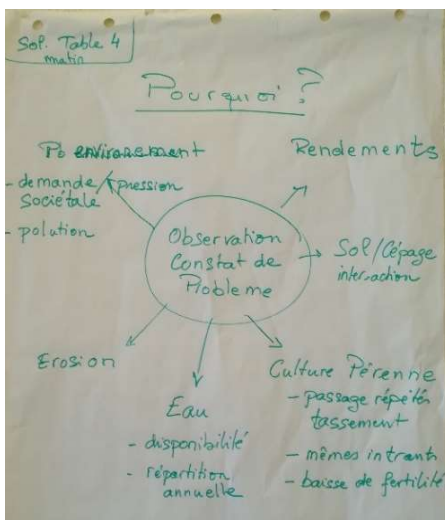 Sol. Table 4
matin
Pourquoi ?
environement
- demande/pression
Sociétale
- polution
Rendements
Observation
Constat de
Problème
Sol/Cépage
interaction
Erosion
Eau
- disponibilité
- répartition
annuelle
Culture Pérenne
- passage répétés
tassement
- mêmes intrants
- baisse de fertilité